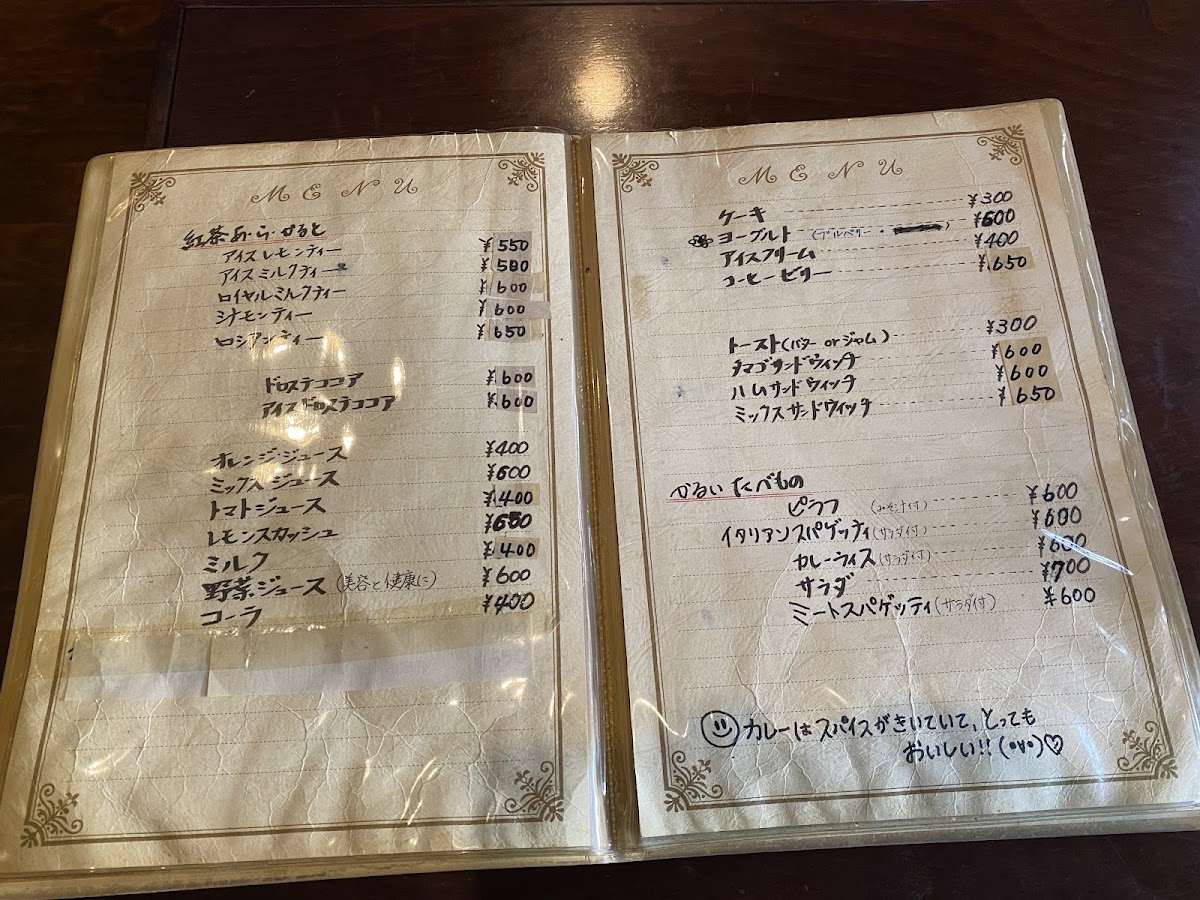 MENU
紅茶あ・ら・かると
アイスレモンティー ¥550
アイスミルクティー ¥500
ロイヤルミルクティー ¥600
シナモンティー ¥600
ロシアンティー ¥650
ドロステココア ¥600
アイスドロステココア ¥600
オレンジジュース ¥400
ミックスジュース ¥600
トマトジュース ¥400
レモンスカッシュ ¥650
ミルク ¥400
野菜ジュース (美容と健康に) ¥600
コーラ ¥400
MENU
ケーキ ¥300
ヨーグルト (ブルーベリー・ ) ¥600
アイスクリーム ¥400
コーヒーゼリー ¥650
トースト(バター orジャム) ¥300
タマゴサンドウィッチ ¥600
ハムサンドウィッチ ¥600
ミックスサンドウィッチ ¥650
かるいたべもの
ピラフ ¥600
イタリアンスパゲッティ(サラダ付) ¥600
カレーライス(サラダ付) ¥600
サラダ ¥700
ミートスパゲッティ(サラダ付) ¥600
カレーはスパイスがきいていて、とっても
おいしい!! (•v•)♡